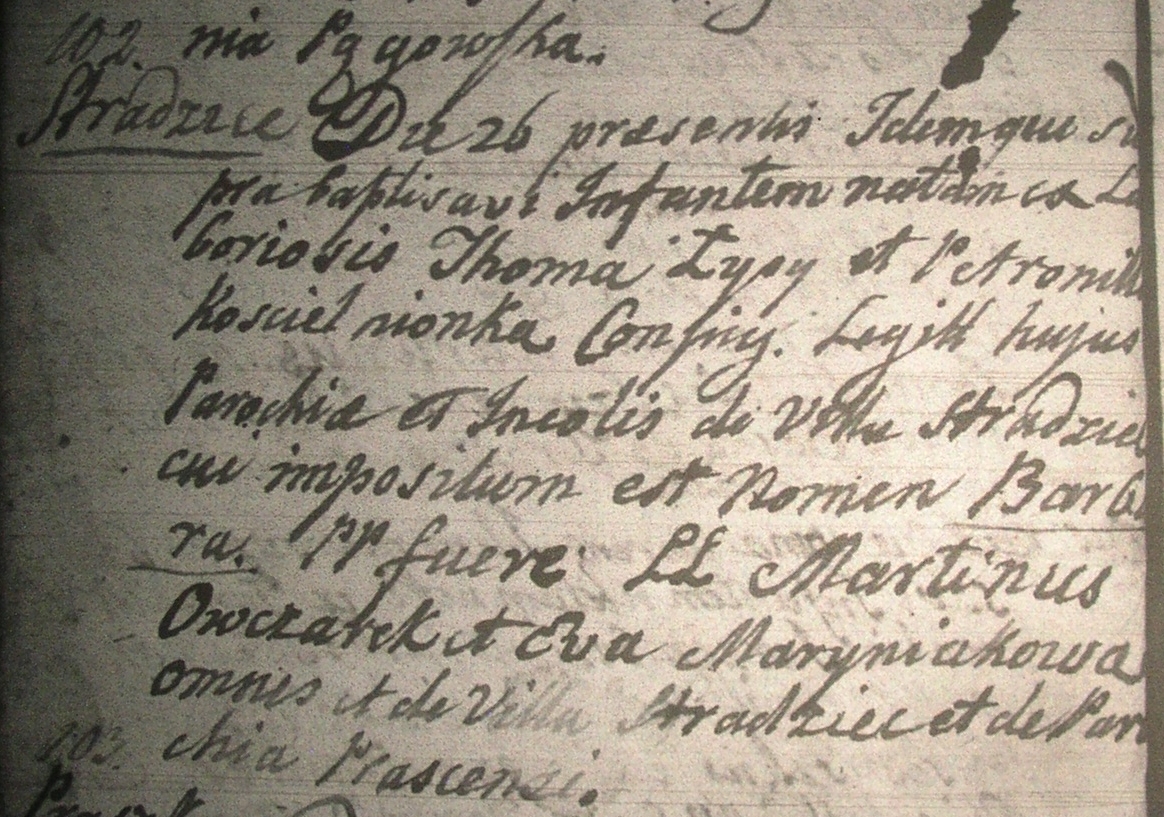 102. nia Pągowska.
Stradzice Die 26 præsentis Idemque su
pra baptisavi Infantem natam ex La
boriosis Thoma Łysy et Petronilla
Kosciel nionka Conjug. Legitt hujus
Parochiæ et Incolis de Villa Stradziec
cui impositum est Nomen Barba
ra. PP fuere LL Martinus
Owczarek et Eva Maryniakowa
omnes et de Villa Stradziec et de Paro
103. chia Prascensi.